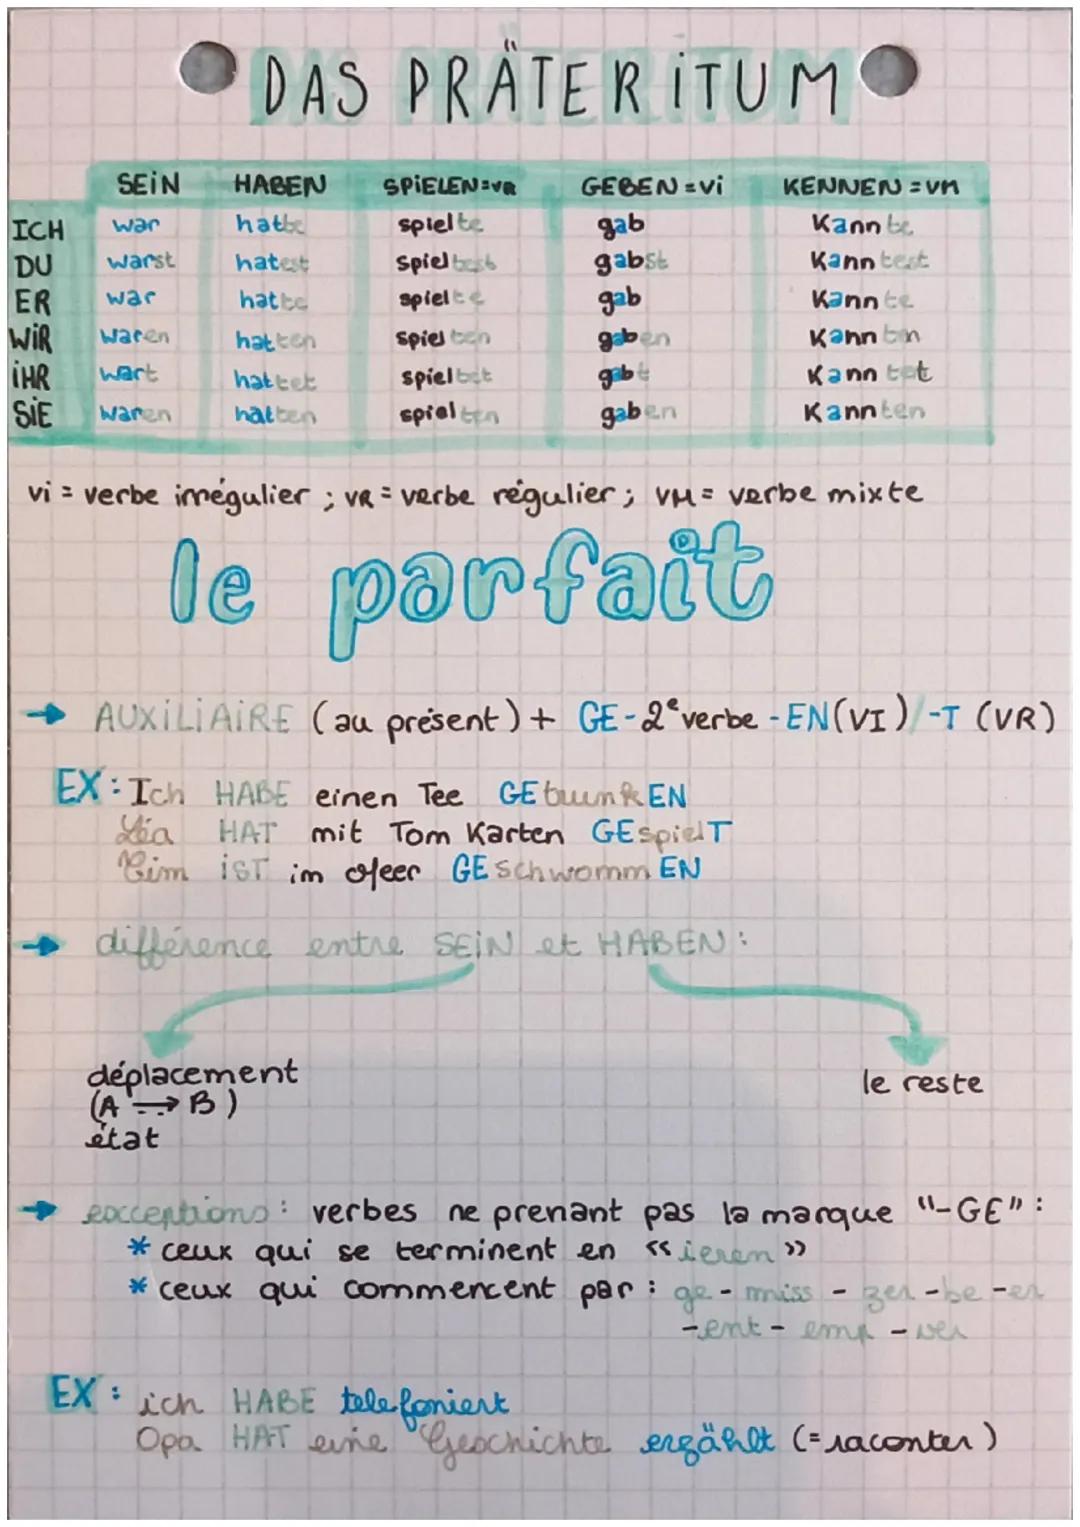 DAS PRÄTERITUM
SEIN HABEN SPIELEN=VR GEBEN=Vi KENNEN=VM
ICH war hatte spielte gab Kannte
DU warst hatest spieltest gabst Kanntest
ER war hatte spielte gab Kannte
WIR waren hatten spielten gaben Kannten
IHR wart hattet spieltet gabt Kanntet
SIE waren hatten spielten gaben Kannten
vi = verbe irrégulier ; VR = verbe régulier ; VM = verbe mixte
le parfait
→ AUXILIAIRE (au présent) + GE-2e verbe -EN(VI)/-T (VR)
EX : Ich HABE einen Tee GEtrunkEN
Léa HAT mit Tom Karten GEspielT
Tim iST im Meer GEschwommEN
→ différence entre SEIN et HABEN :
déplacement le reste
(A → B)
état
→ exceptions : verbes ne prenant pas la marque "-GE" :
* ceux qui se terminent en « ieren »
* ceux qui commencent par : ge - miss - zer - be - er
- ent - emp - ver
EX : ich HABE telefoniert
Opa HAT eine Geschichte erzählt (= raconter)